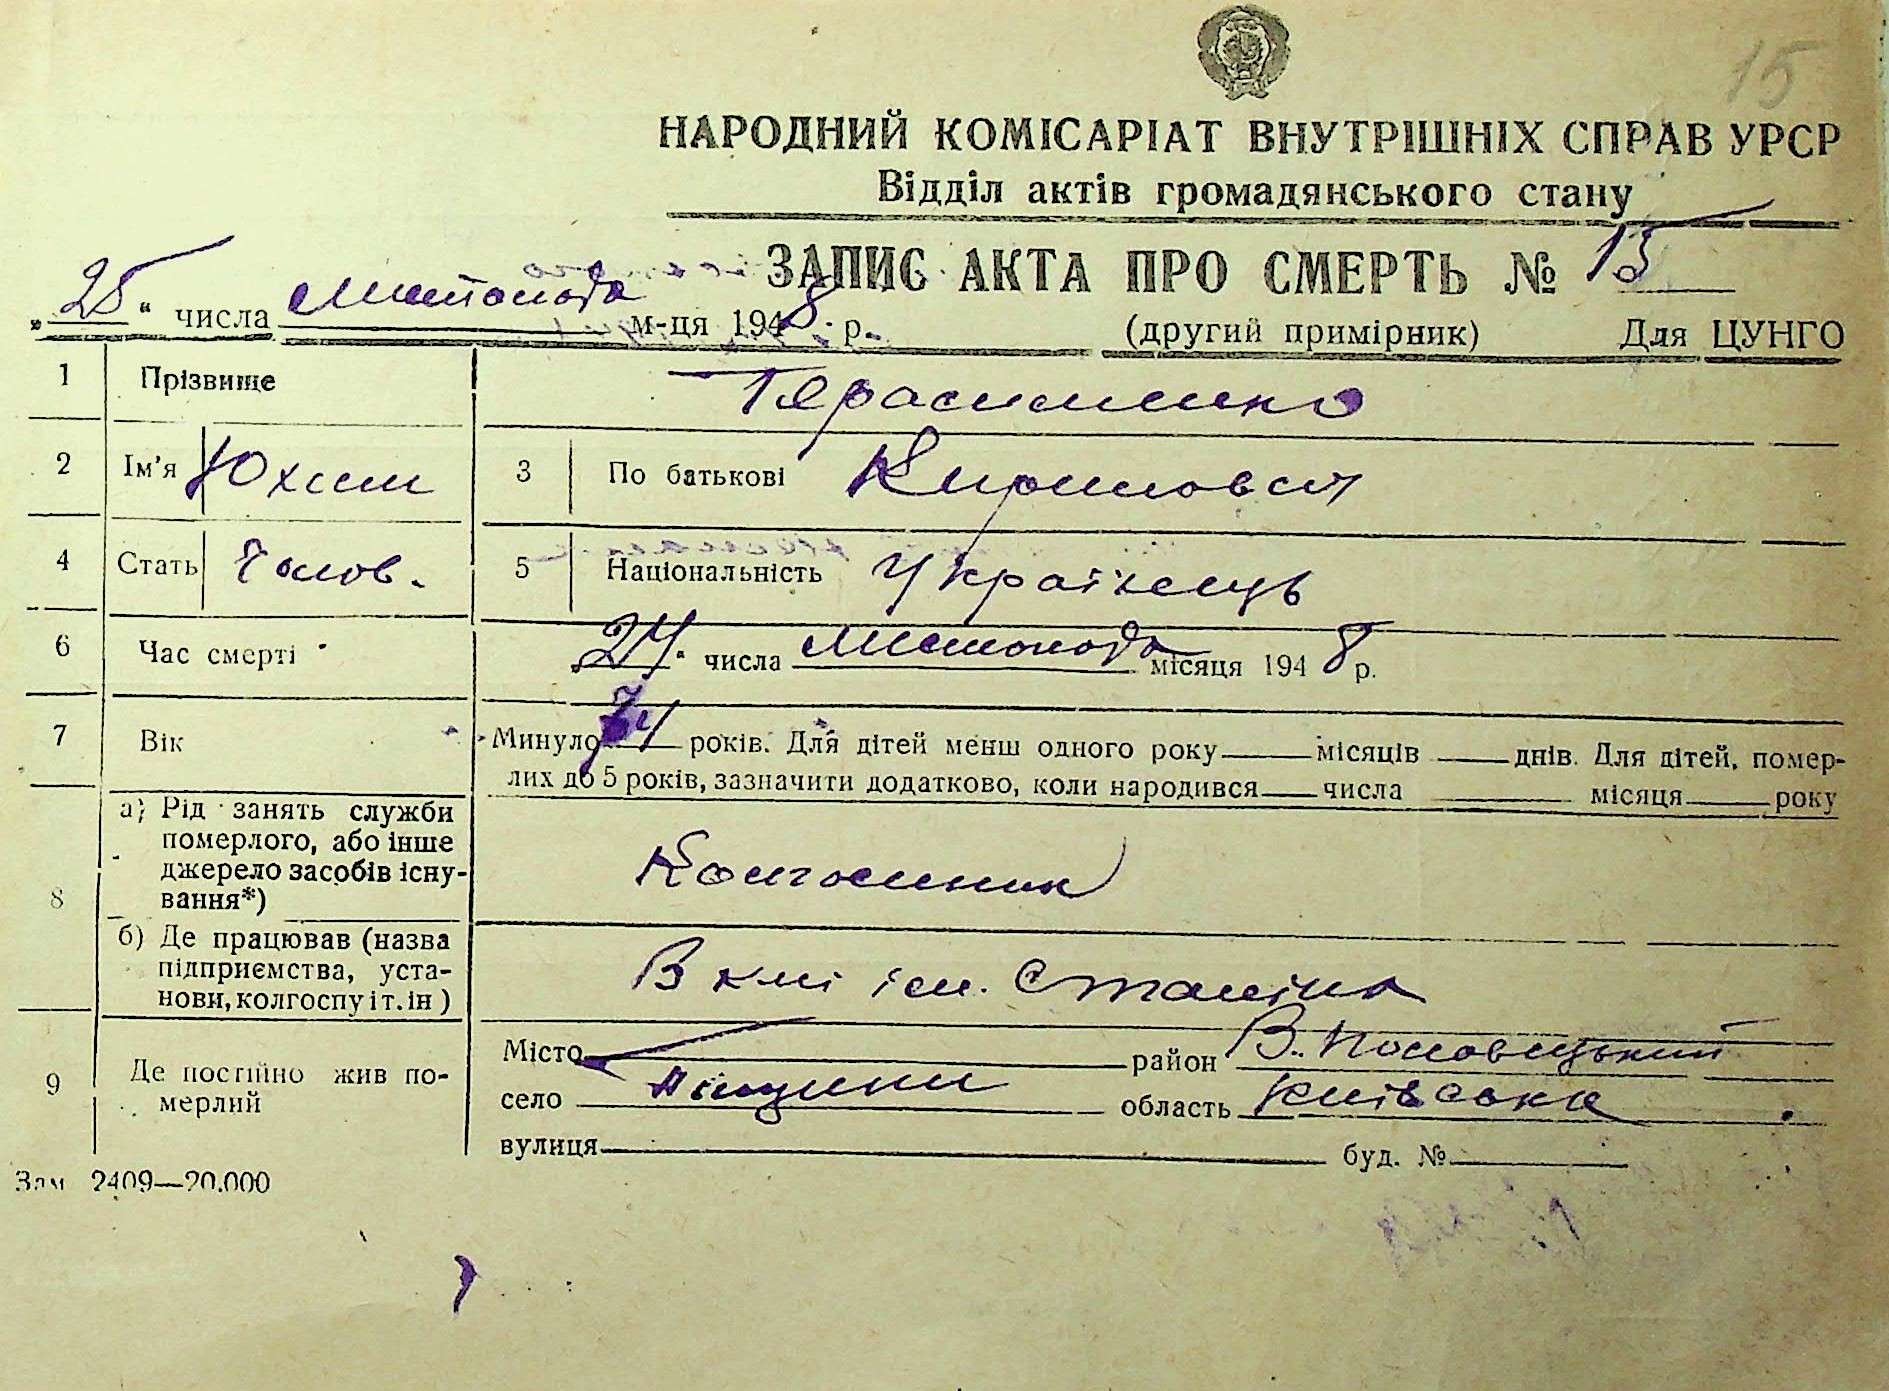 15
НАРОДНИЙ КОМІСАРІАТ ВНУТРІШНІХ СПРАВ УРСР
Відділ актів громадянського стану
ЗАПИС АКТА ПРО СМЕРТЬ № 15
„25“ числа Листопада м-ця 1948 р. (другий примірник) Для ЦУНГО
1 Прізвище Герасименко
2 Ім'я Юхим 3 По батькові
4 Стать Чолов. 5 Національність Українець
6 Час смерті „24“ числа Листопада місяця 1948 р.
7 Вік Минуло 74 років. Для дітей менш одного року місяців днів. Для дітей, помер-
лих до 5 років, зазначити додатково, коли народився числа місяця року
8 а) Рід занять служби
померлого, або інше
джерело засобів існу-
вання*) Колгоспник
б) Де працював (назва
підприємства, уста-
нови, колгоспу і т. ін) В к-пі ім. Сталіна
9 Де постійно жив по-
мерлий
Місто район В.-Половецький
село область Київська
вулиця буд. №
Зам 2409—20.000